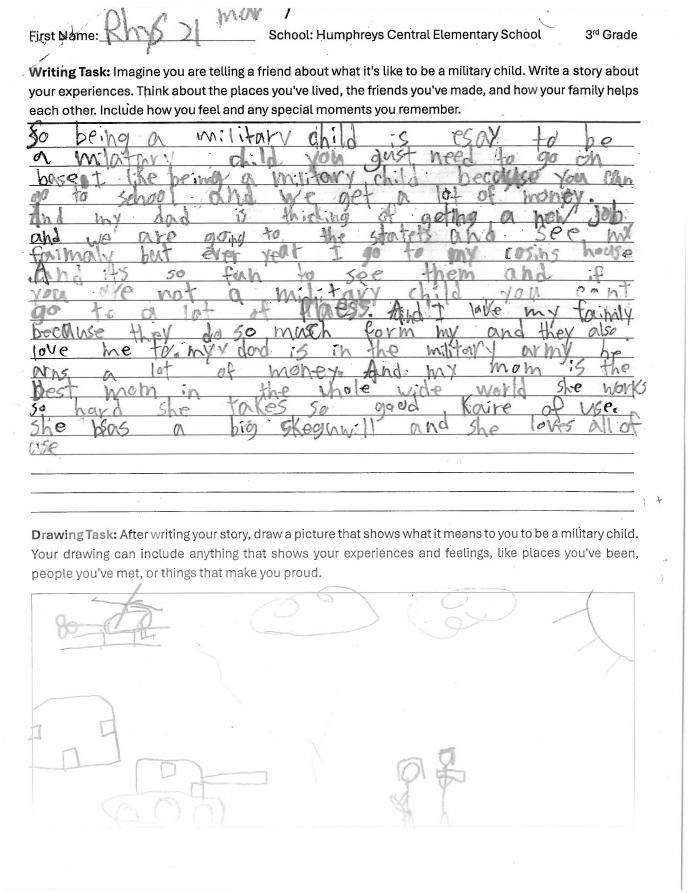 mar 1
First Name: Rhys 21 School: Humphreys Central Elementary School 3rd Grade
Writing Task: Imagine you are telling a friend about what it's like to be a military child. Write a story about
your experiences. Think about the places you've lived, the friends you've made, and how your family helps
each other. Include how you feel and any special moments you remember.
So being a military child is esay to be
a milatary child you gust need to go on
base. I like being a military child because you can
go to school and we get a lot of money.
And my dad is thicking of geting a new job.
and we are going to the statets and see my
faimaly but ever year I go to my cosins house
And its so fun to see them and if
you are not a military child you
go to a lot of Placess. And I love my faimly
because they do so much form my and they also
love me to. my dad is in the military army he
arns a lot of money. And my mom is the
best mom in the whole wide world she works
so hard she takes so good kaire of use.
she has a big and she loves all of
use
Drawing Task: After writing your story, draw a picture that shows what it means to you to be a military child.
Your drawing can include anything that shows your experiences and feelings, like places you've been,
people you've met, or things that make you proud.